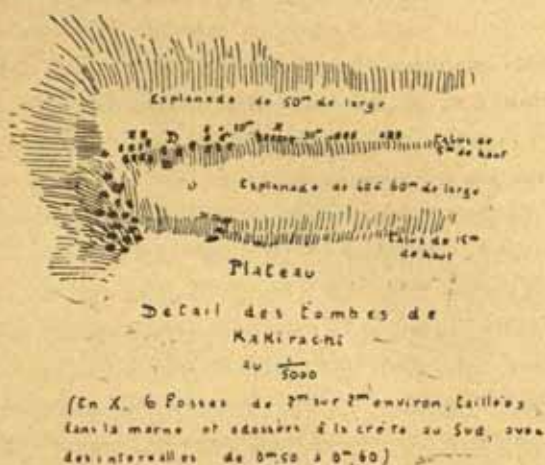 Esplanade de 50m de large
D
15m
X
30m
Talus de
5m de haut
Esplanade de 60 à 60m de large
Talus de 15m
de haut
Plateau
Détail des tombes de
Kakirachi
au 1/5000
(En X. 6 Fosses de 2m sur 2m environ, taillées
dans la marne et adossées à la crête au Sud, avec
des intervalles de 0m,50 à 0m,60)